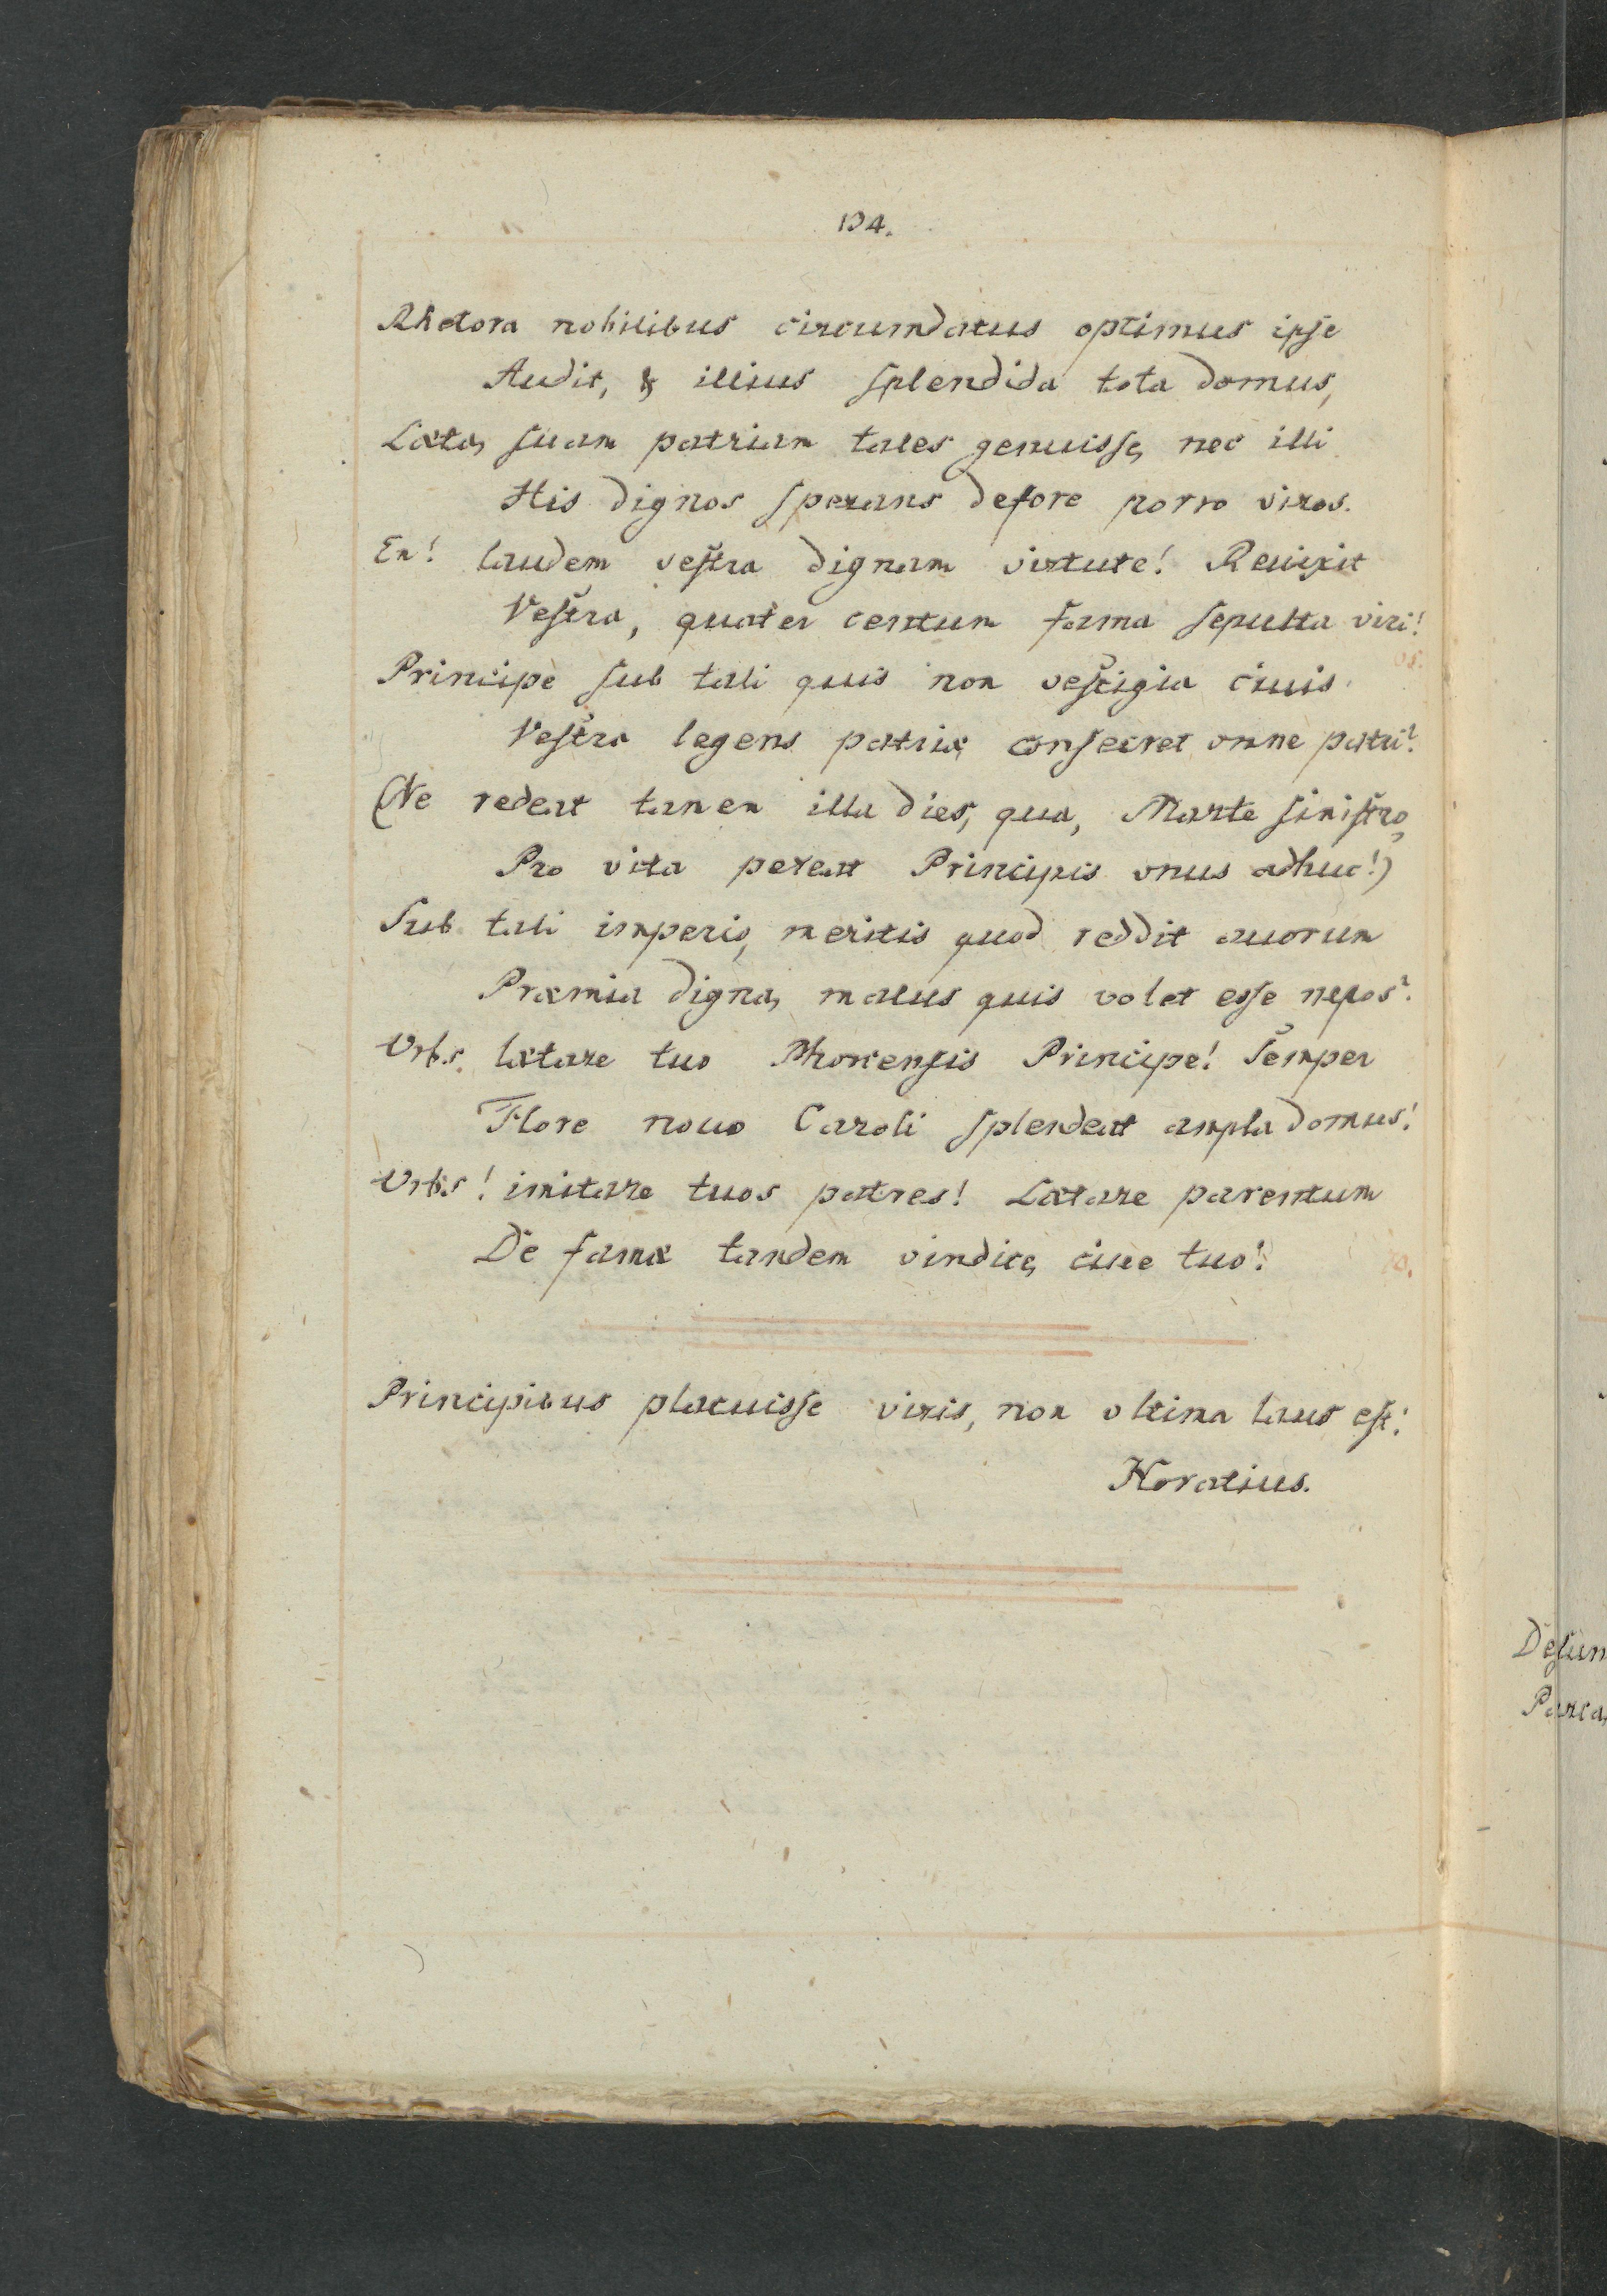 134.
Rhetora nobilibus circumdatus optimus ipſe
Audit, & illius ſplendida tota domus,
Læta, ſuam patriam tales genuiſſe, nec illi
His dignos ſperans defore porro viros.
En! laudem veſtra dignam virtute! Reuixit
Veſtra, quater centum fama ſepulta viri!
Principe ſub tali quis non veſtigia ciuis
Veſtra legens patriæ conſecret omne patri?
(Ne redeat tamen illa dies, qua, Marte ſiniſtro,
Pro vita pereat Principis vnus adhuc!)
Sub tali imperio, meritis quod reddit auorum
Præmia digna, malus quis volet eſſe nepos?
Vrbs lætare tuo Phorcenſis Principe! Semper
Flore nouo Caroli ſplendeat ampla domus!
Vrbs! imitare tuos patres! Lætare parentum
De famæ tandem vindice, ciue tuo!
Principibus placuiſſe viris, non vltima laus eſt!
Horatius.